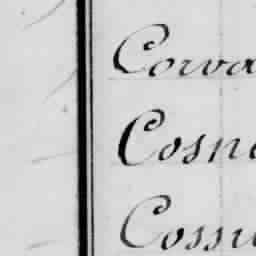 Corva
Cosn
Cossu